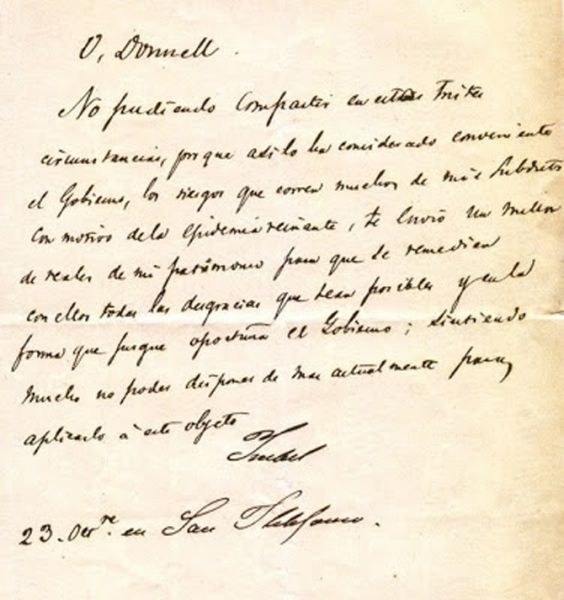 O, Donnell.
No pudiendo compartir en estas tristes
circunstancias, porque asi lo ha considerado conveniente
el Gobierno, los riesgos que corren muchos de mis subditos
con motivo de la epidemia reinante, te envio un millon
de reales de mi patrimonio para que se remedian
con ellos todas las desgracias que sean posibles y en la
forma que juzgue oportuna el Gobierno; sintiendo
mucho no poder disponer de mas actualmente para
aplicarlo á este objeto
Isabel
23. Oct.re en San Ildefonso.